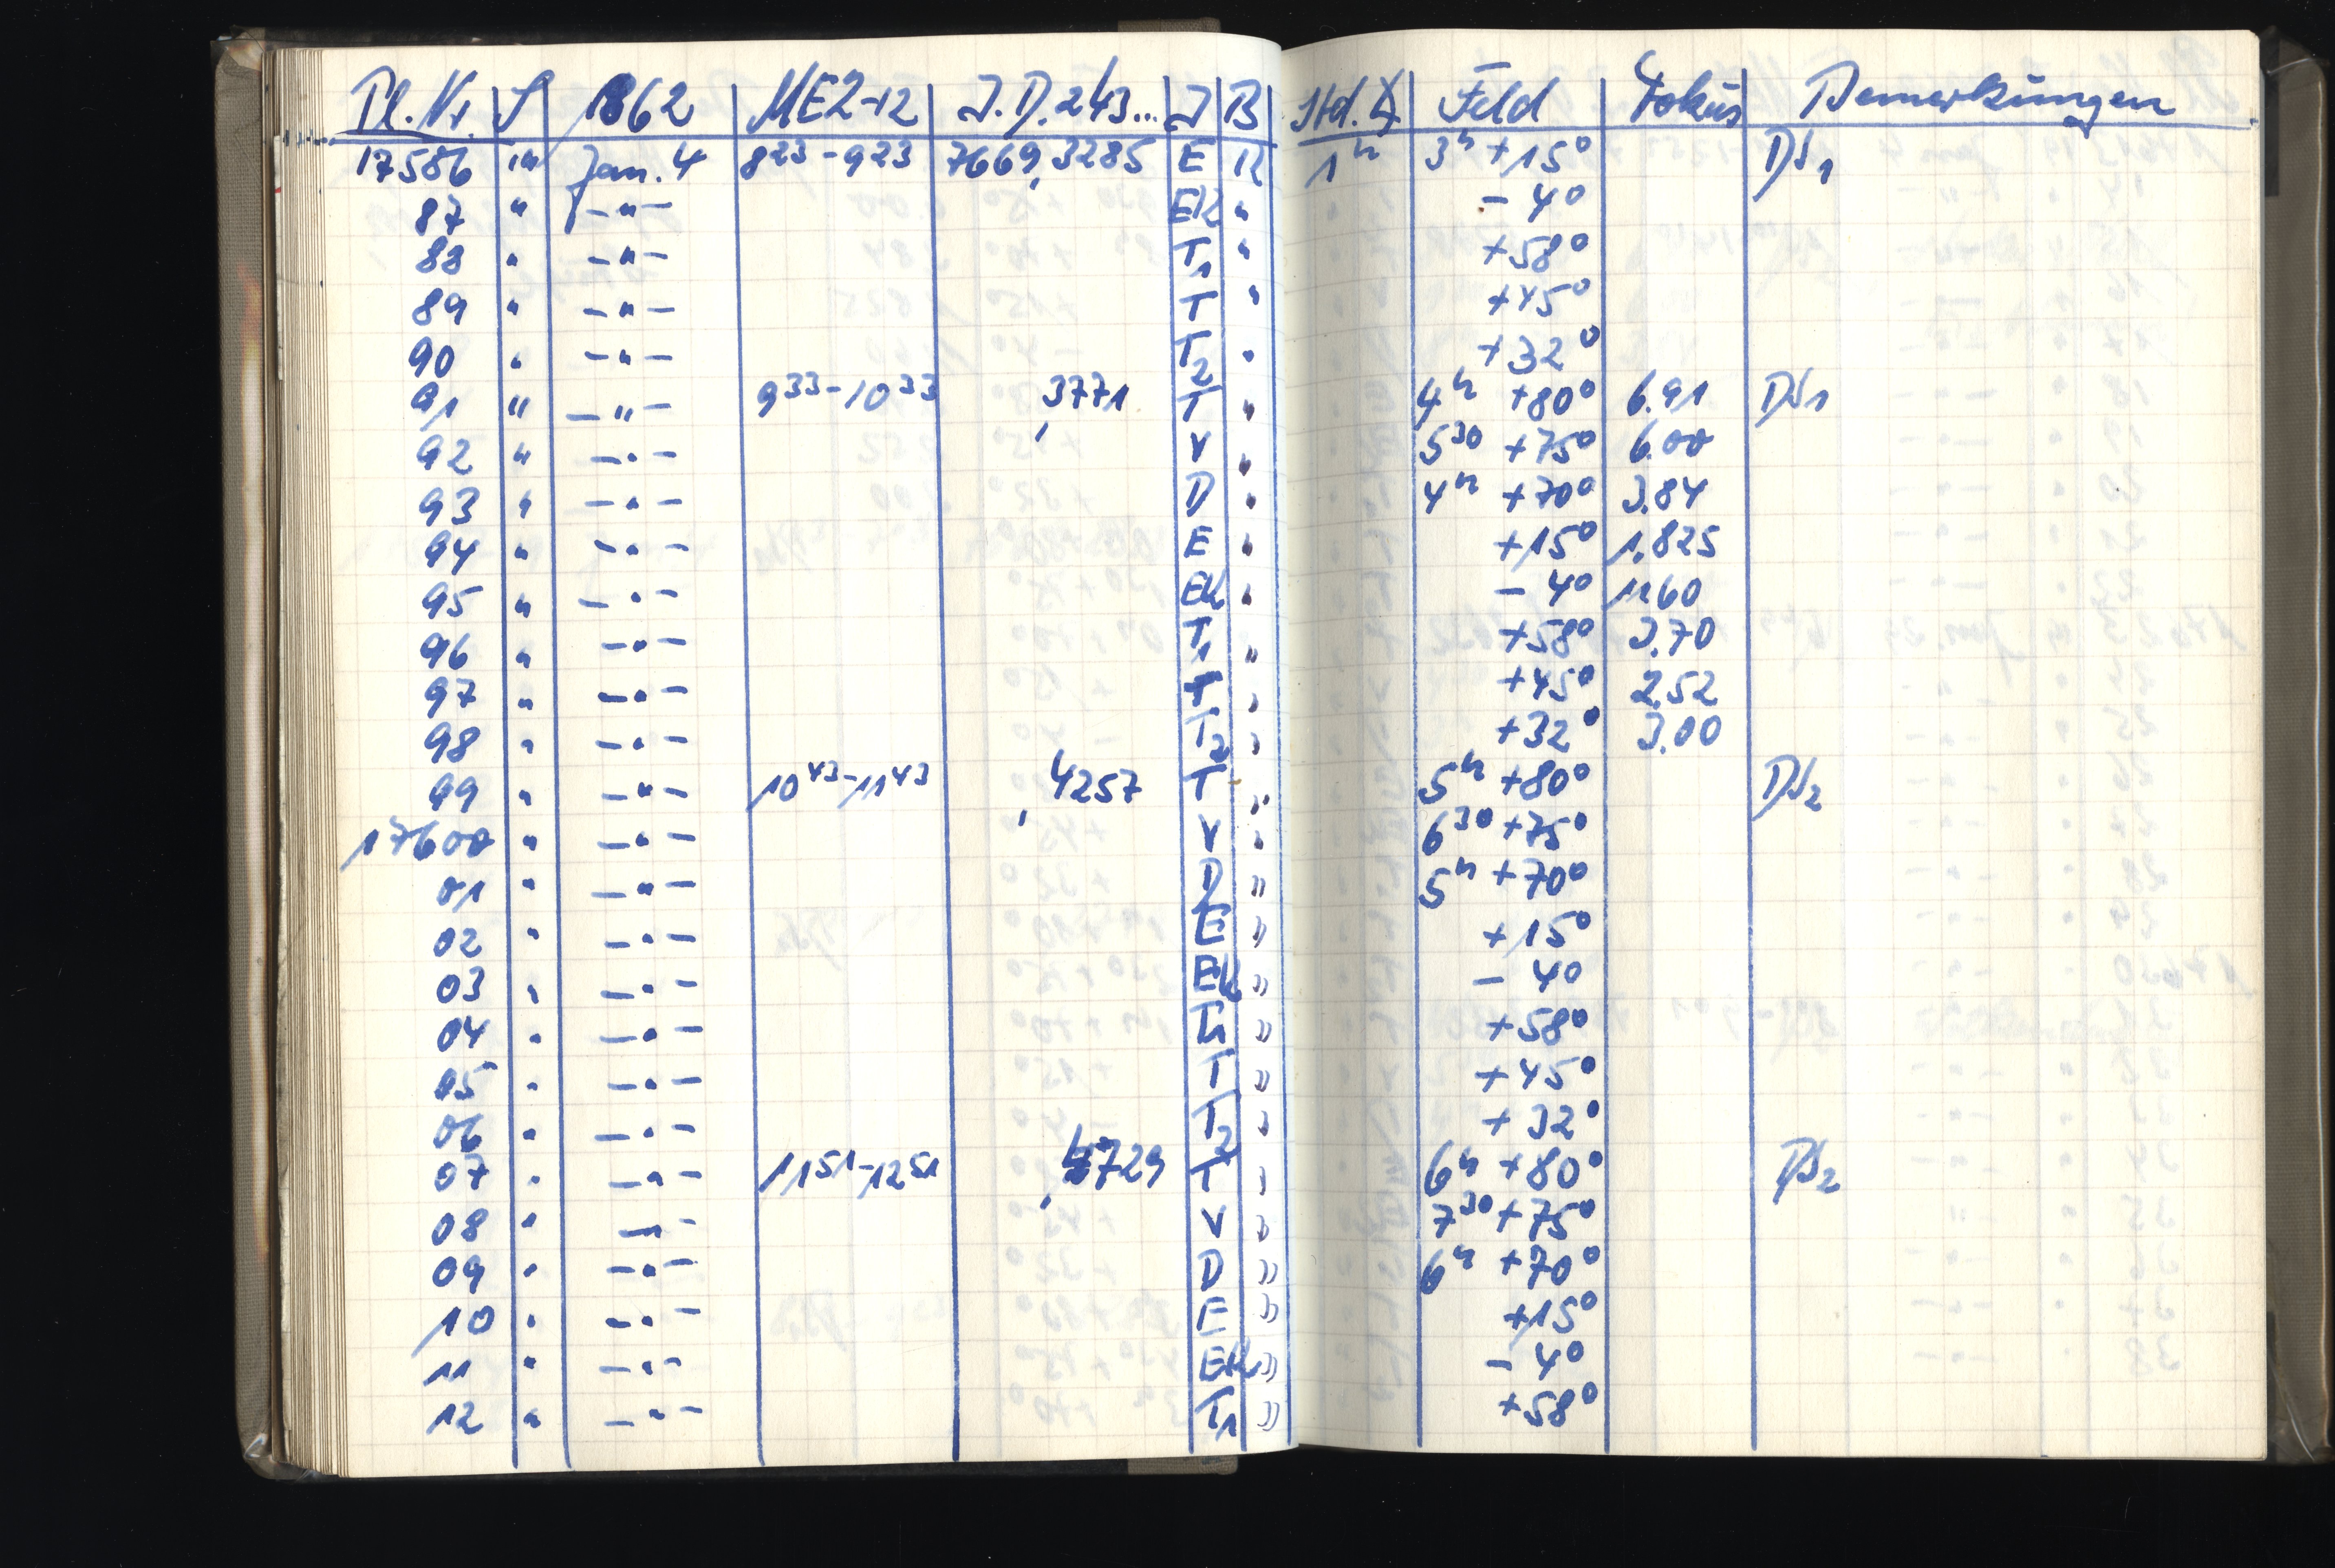 Pl. Nr S 1962 MEZ-12 J.D. 243... J B Std. ∢ Feld Fokus Bemerkungen
17586 " Jan. 4 8²³-9²³ 7669,3285 E R 1ʰ 3ʰ +15° DS₁
87 " -"- EK " - 4°
88 " -"- T₁ " +58°
89 " -"- T " +45°
90 " -"- T₂ " +32°
91 " -"- 9³³-10³³ ,3771 T " 4ʰ +80° 6.91 DS₁
92 " -"- V " 5³⁰ +75° 6.00
93 " -"- D " 4ʰ +70° 3.84
94 " -"- E " +15° 1.825
95 " -"- EK " - 4° 11.60
96 " -"- T₁ " +58° 3.70
97 " -"- T " +45° 2.52
98 " -"- T₂ " +32° 3.00
99 " -"- 10⁴³-11⁴³ ,4257 T " 5ʰ +80° DS₂
17600 " -"- V " 6³⁰ +75°
01 " -"- D " 5ʰ +70°
02 " -"- E " +15°
03 " -"- EK " - 4°
04 " -"- T₁ " +58°
05 " -"- T " +45°
06 " -"- T₂ " +32°
07 " -"- 11⁵¹-12⁵¹ ,4729 T " 6ʰ +80° DS₂
08 " -"- V " 7³⁰ +75°
09 " -"- D " 6ʰ +70°
10 " -"- E " +15°
11 " -"- EK " - 4°
12 " -"- T₁ " +58°